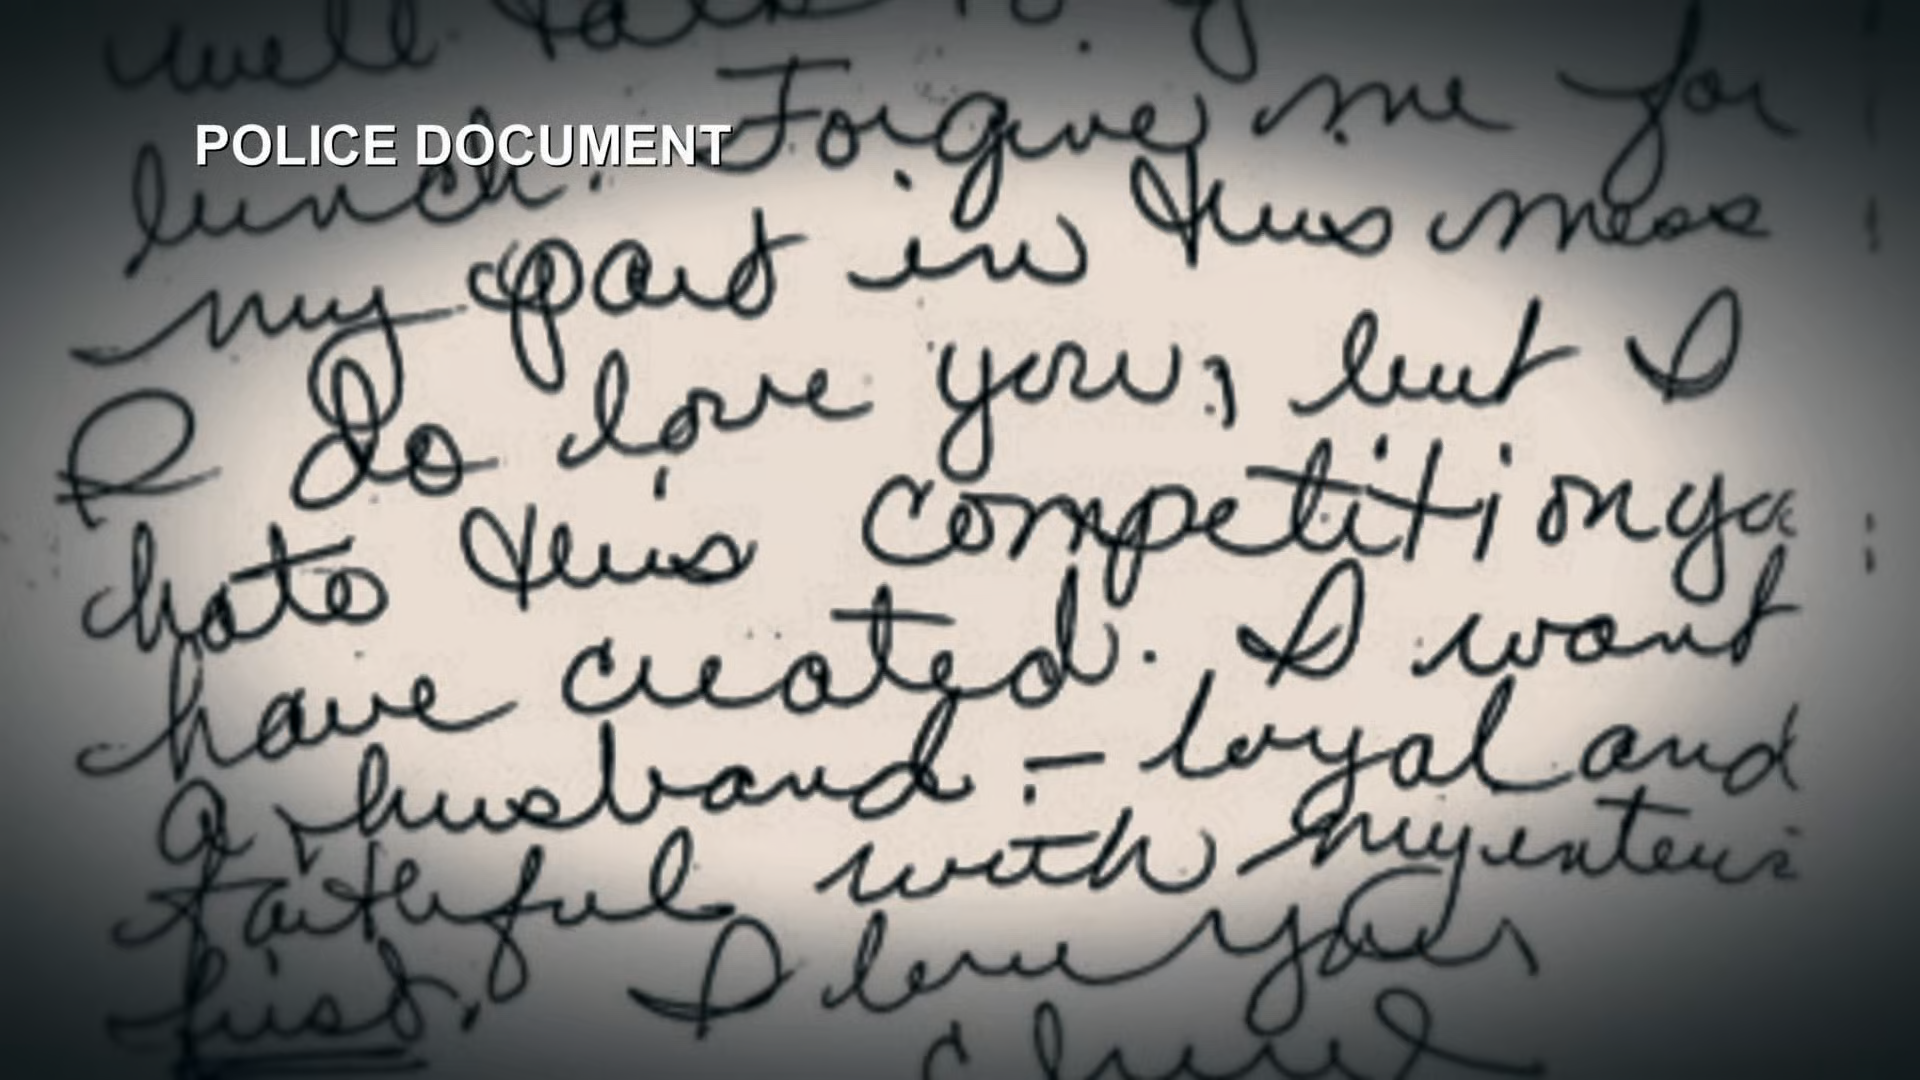 well talk to
POLICE DOCUMENT
lunch. Forgive me for
my part in this mess
I do love you, but I
hate this competition
have created. I want
a husband – loyal and
faithful with my
first. I love you,